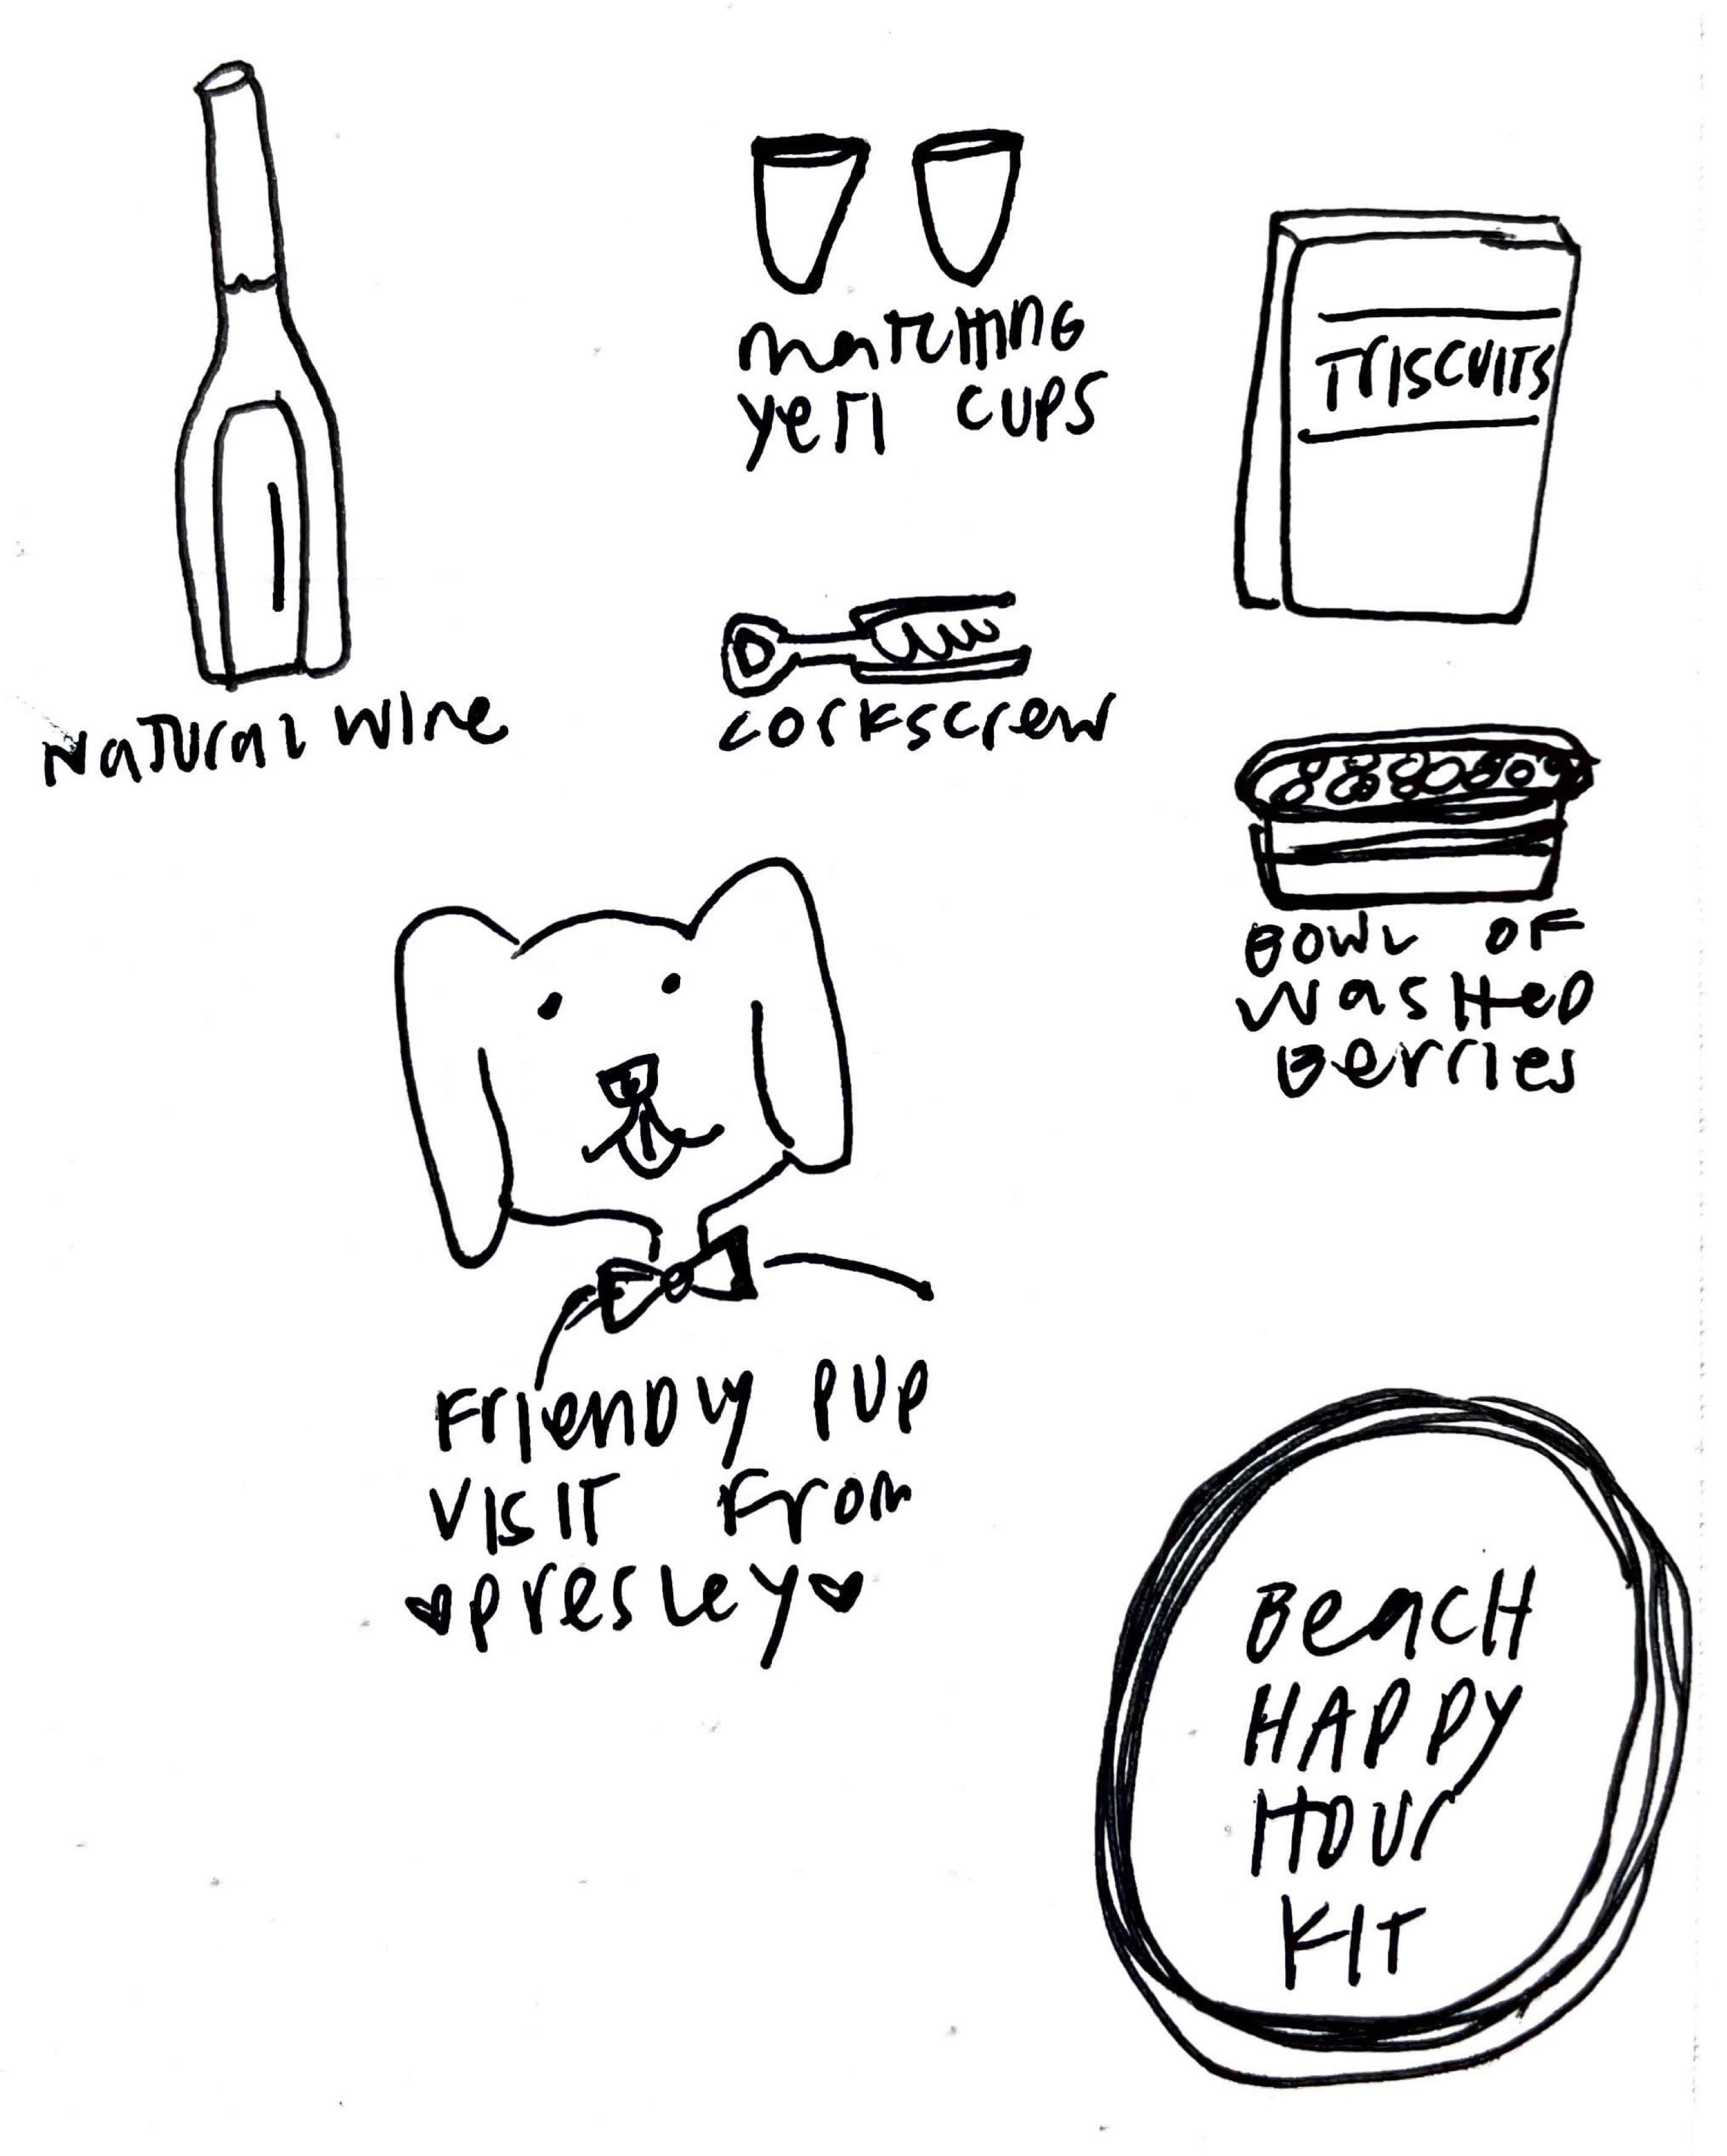 natural wine
matching
yeti cups
Triscuits
corkscrew
Bowl of
washed
Berries
Friendly pup
visit from
♥presley♥
Beach
HAPPY
Hour
Kit